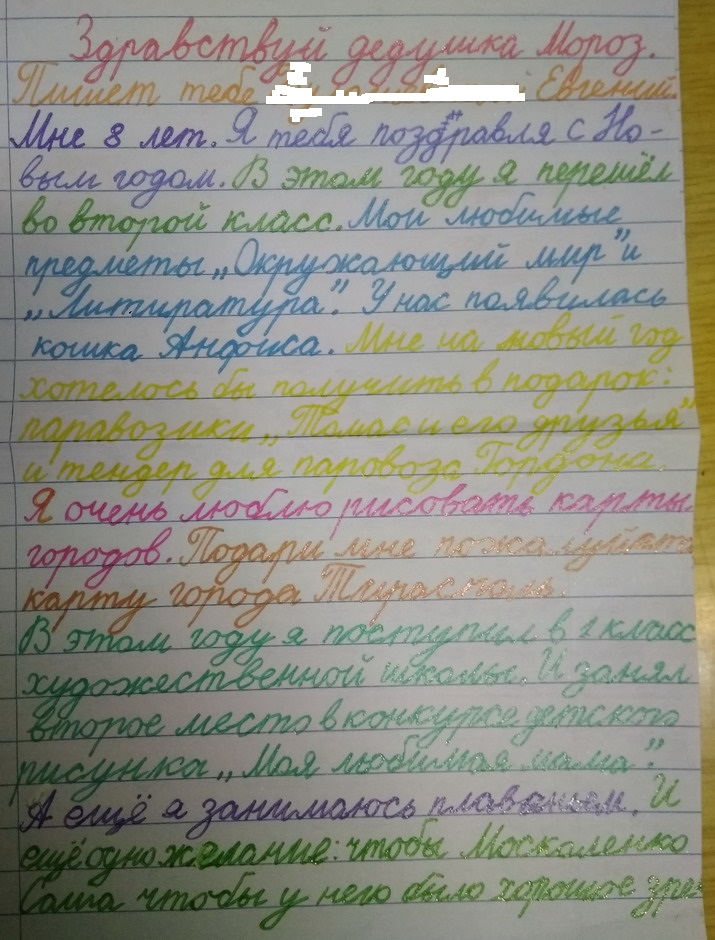 Здравствуй дедушка Мороз.
Пишет тебе Евгений.
Мне 8 лет. Я тебя поздравля с Но-
вым годом. В этом году я перешёл
во второй класс. Мои любимые
предметы „Окружающий мир" и
„Литиратура". У нас появилась
кошка Анфиса. Мне на новый год
хотелось бы получить в подарок:
паравозики „Томас и его друзья"
и тендер для паровоза Гордона.
Я очень люблю рисовать карты
городов. Подари мне пожалуйста
карту города
В этом году я поступил в 1 класс
художественной школы. И занял
второе место в конкурсе детского
рисунка „Моя любимая мама".
А ещё я занимаюсь плаваньем. И
ещё одно желание: чтобы Москаленко
Саша чтобы у него было хорошее зре